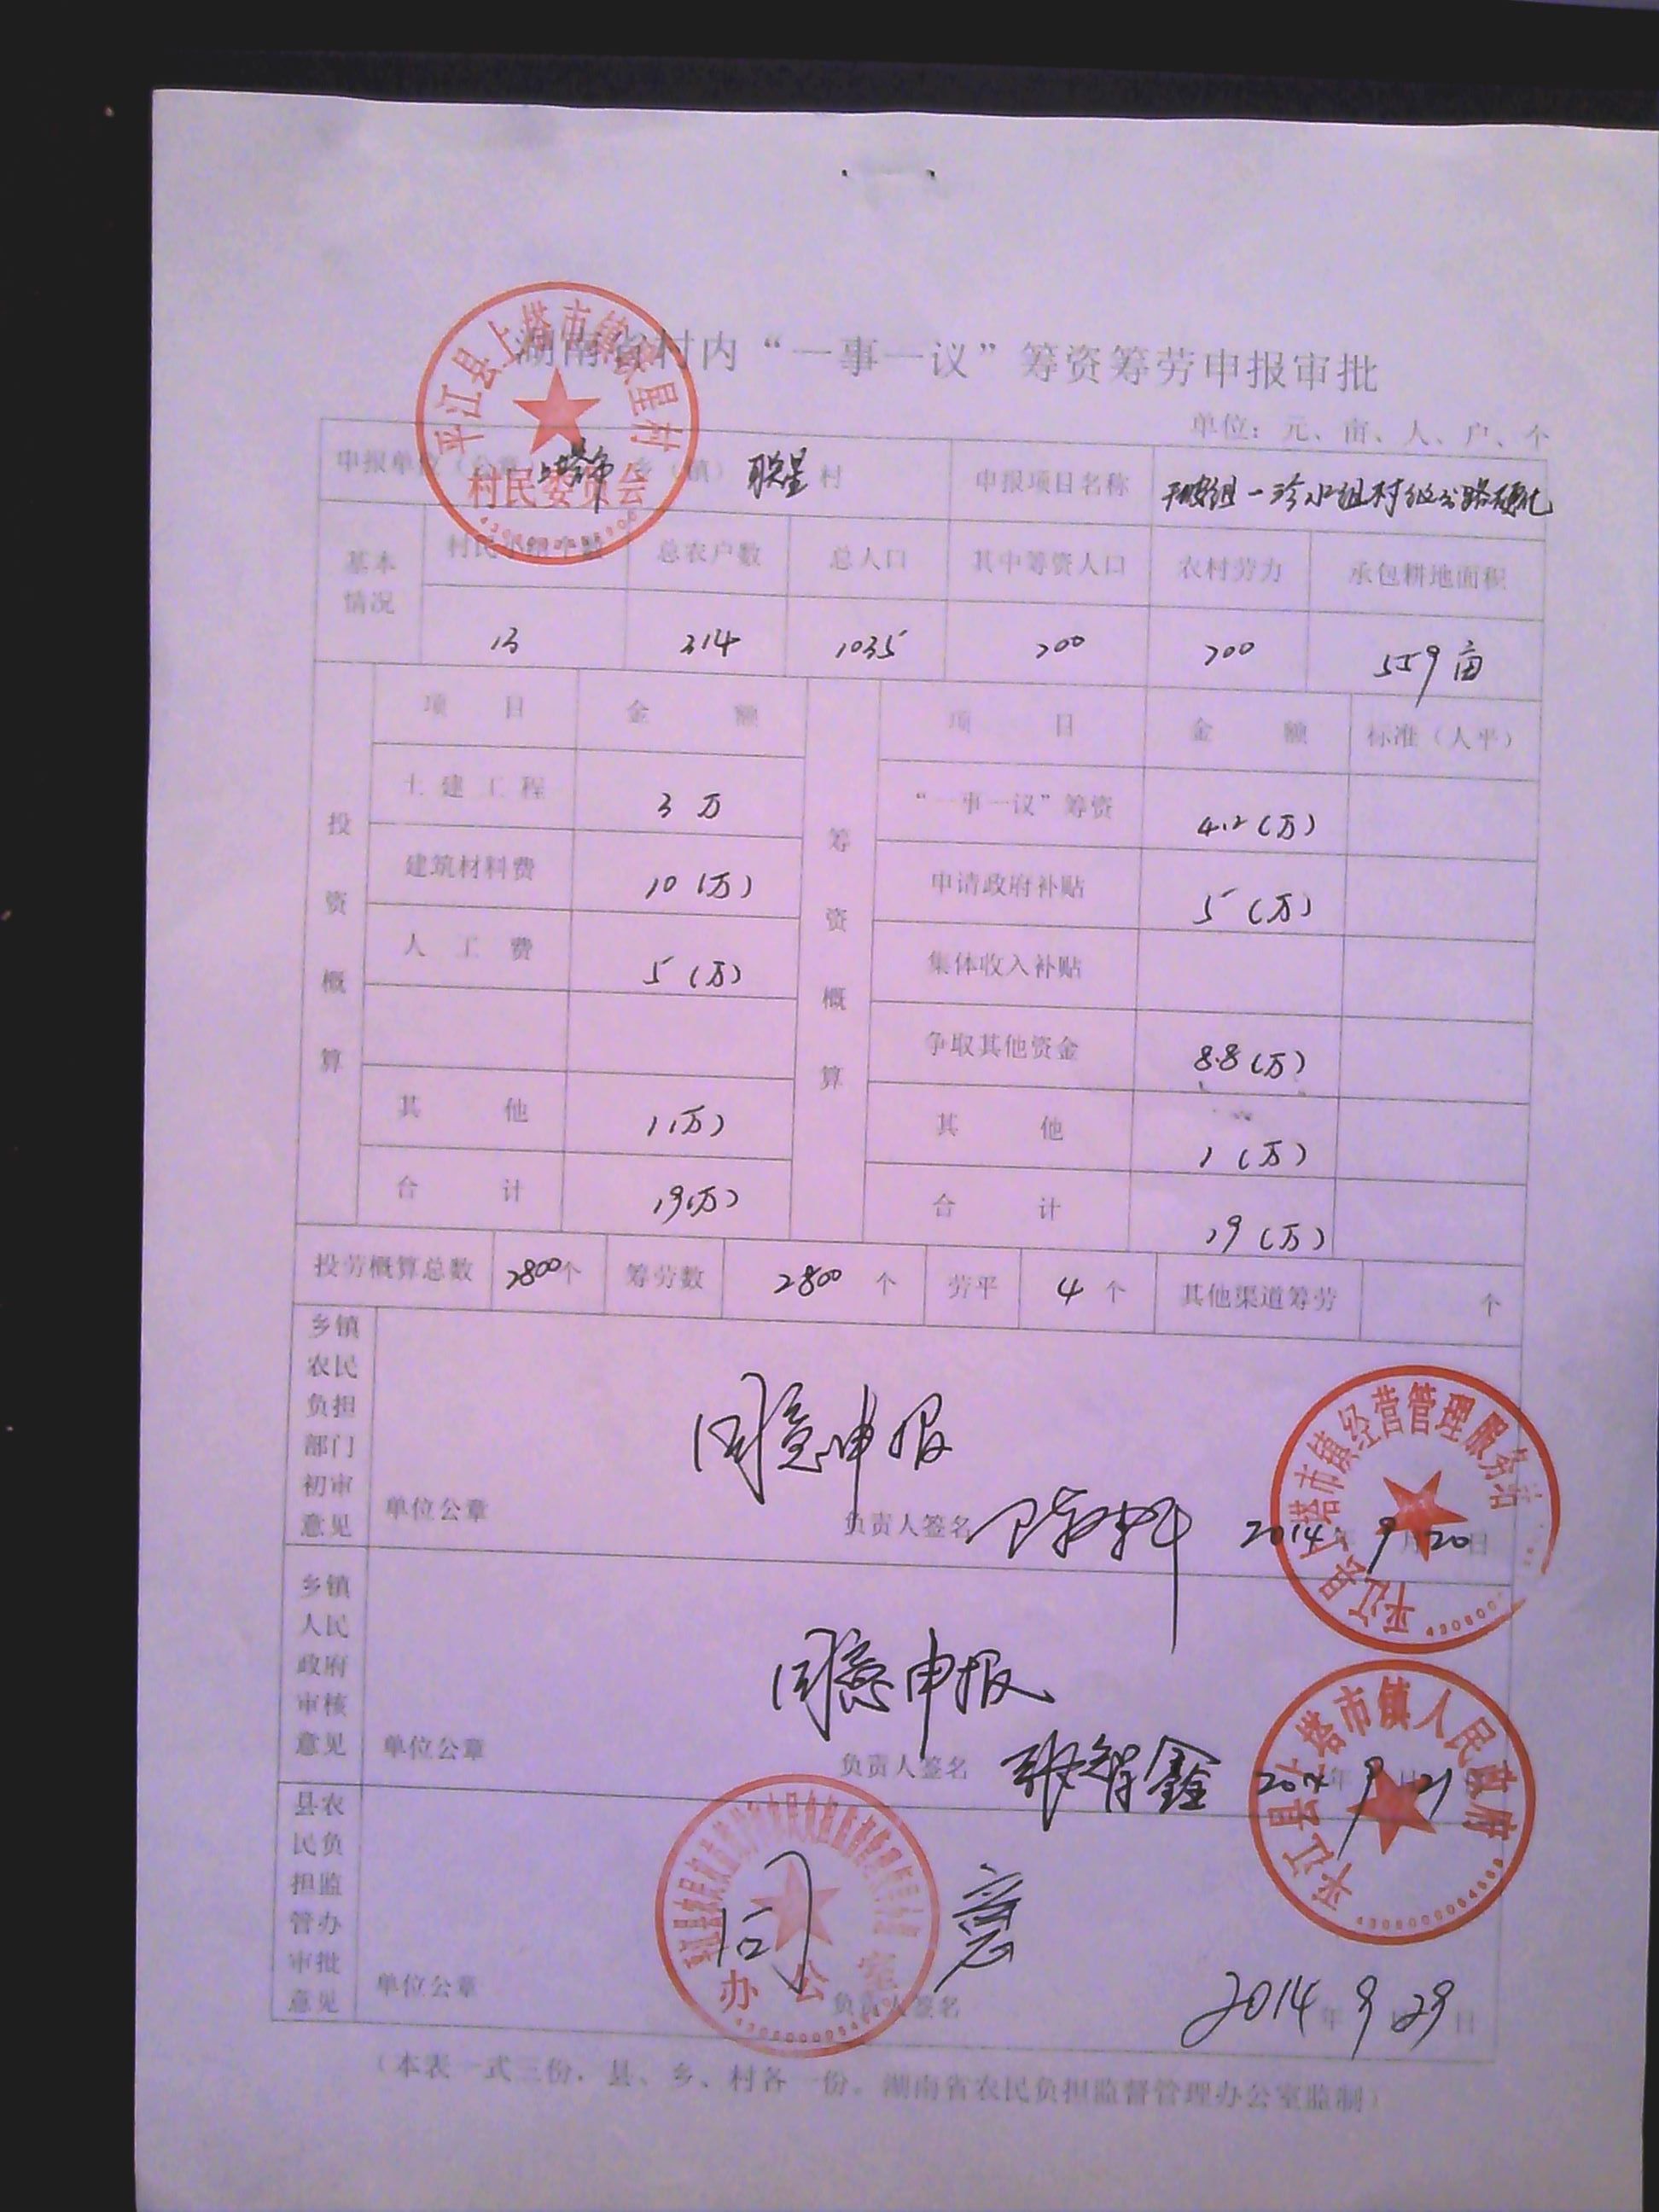 湖南省村内“一事一议”筹资筹劳申报审批
单位：元、亩、人、户、个
申报单位（公章） 上塔市 乡（镇） 联星 村 申报项目名称 组一冷水组村级公路硬化
平江县上塔市镇联星村
村民委员会
基本情况 村民小组个数 总农户数 总人口 其中筹资人口 农村劳力 承包耕地面积
13 314 1035 700 700 559亩
投资概算 项目 金额 筹资概算 项目 金额 标准（人平）
土建工程 3万 “一事一议”筹资 4.2(万)
建筑材料费 10(万) 申请政府补贴 5(万)
人工费 5(万) 集体收入补贴
争取其他资金 8.8(万)
其他 1(万) 其他 1(万)
合计 19(万) 合计 19(万)
投劳概算总数 2800个 筹劳数 2800 个 劳平 4 个 其他渠道筹劳 个
乡镇农民负担部门初审意见
同意申报
单位公章 负责人签名 2014年9月20日
平江县上塔市镇经营管理服务站
乡镇人民政府审核意见
同意申报
单位公章 负责人签名 张智鑫 2014年9月21
平江县上塔市镇人民政府
县农民负担监管办审批意见
同意
办公室
单位公章 负责人签名 2014年9 29日
（本表一式三份，县、乡、村各一份。湖南省农民负担监督管理办公室监制）